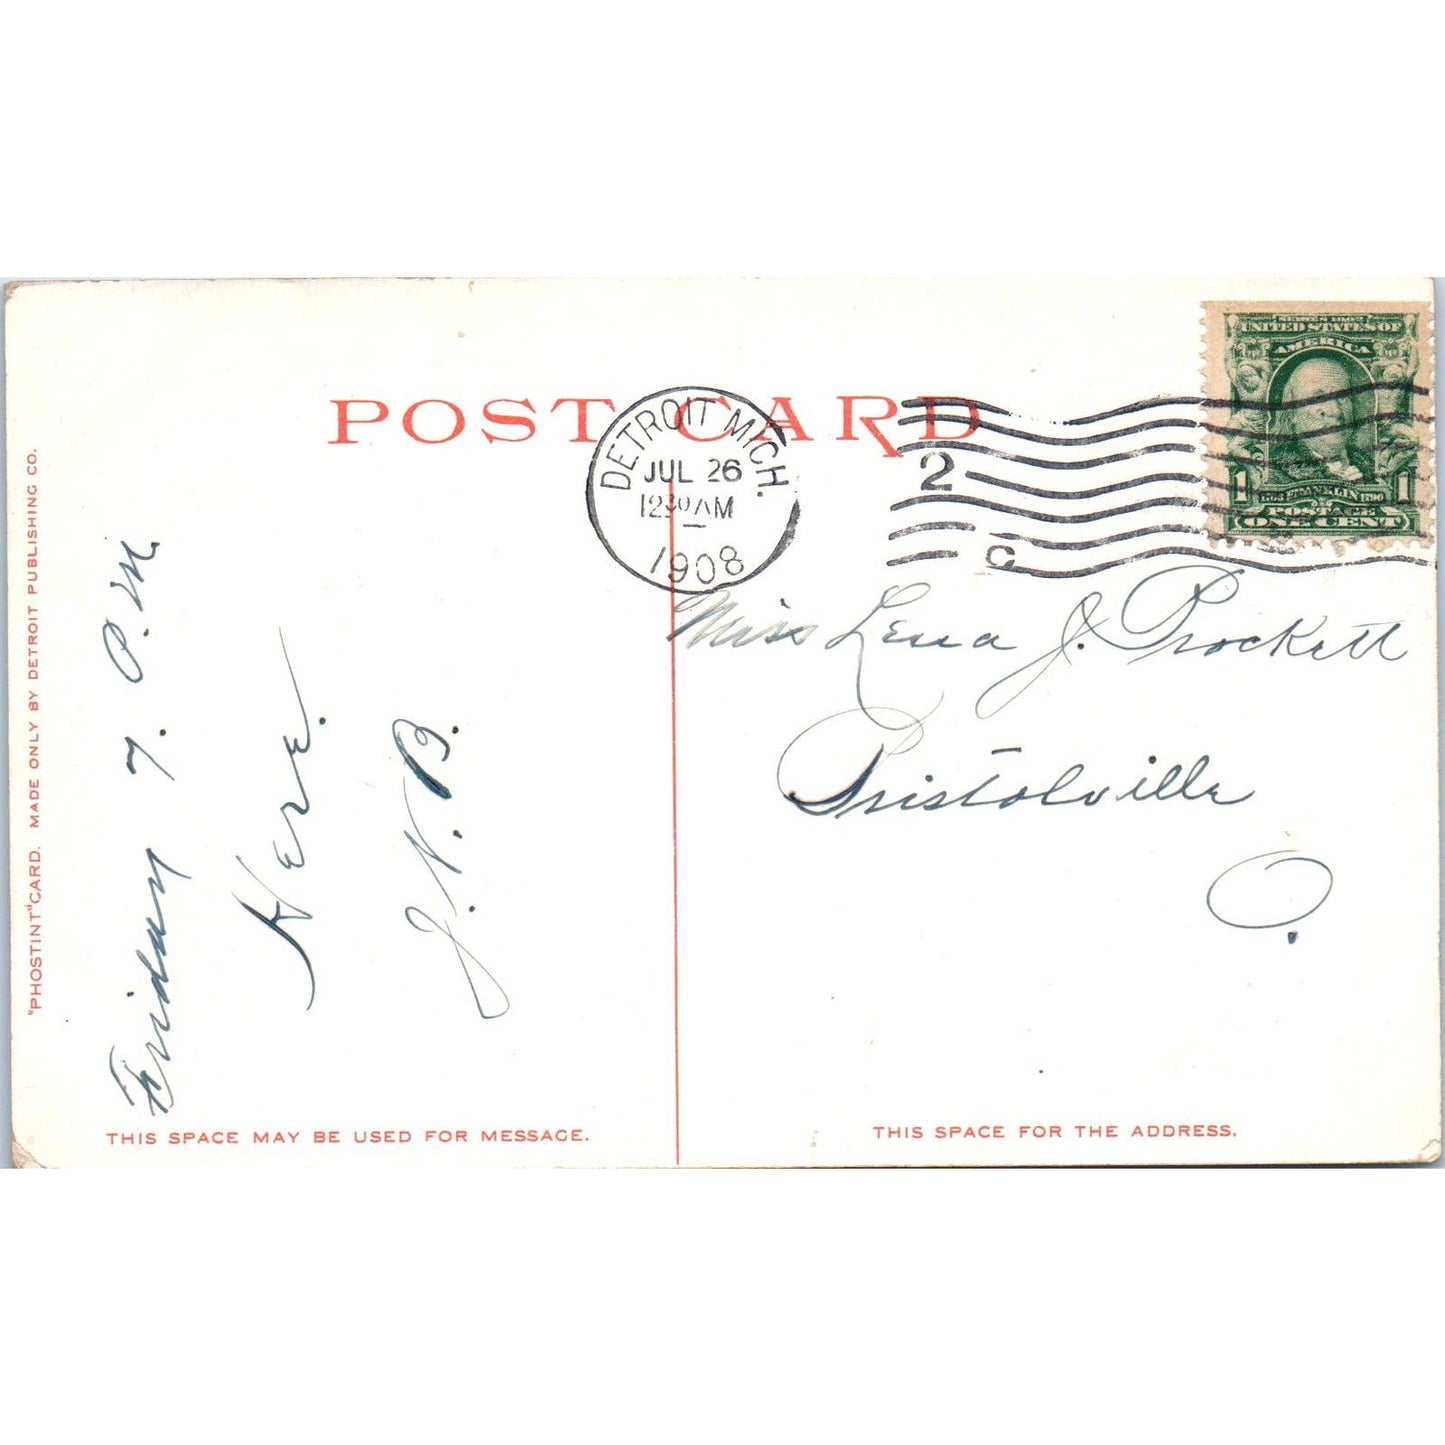 POST CARD
DETROIT MICH.
JUL 26
12 30 AM
1908
2
C
SERIES 1902
UNITED STATES OF
AMERICA
1 1706 FRANKLIN 1790 1
POSTAGE
ONE CENT
"PHOSTINT" CARD. MADE ONLY BY DETROIT PUBLISHING CO.
Friday 7. P.M.
Here.
J.N.B.
Miss Lena J. Prockett
Bristolville
O.
THIS SPACE MAY BE USED FOR MESSAGE.
THIS SPACE FOR THE ADDRESS.